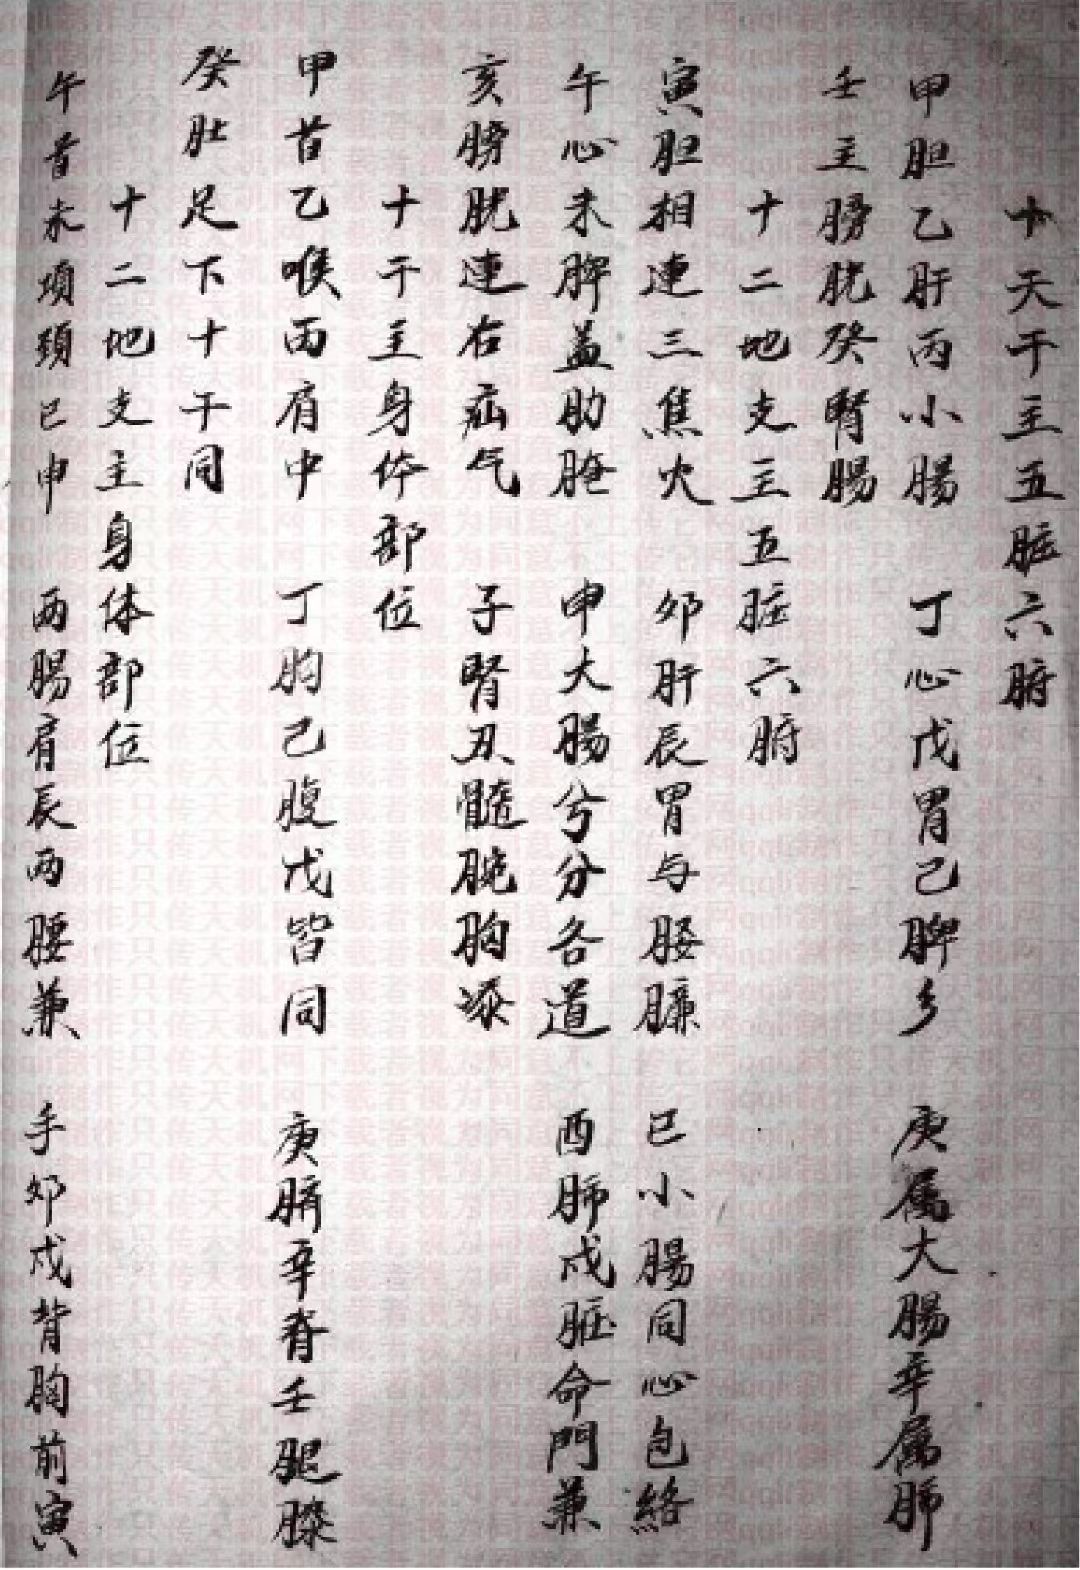 十天干主五脏六腑
甲胆乙肝丙小腸 丁心戊胃己脾乡 庚属大腸辛属肺
壬主膀胱癸腎腸
十二地支主五脏六腑
寅胆相連三焦火 卯肝辰胃与腰臁 巳小腸同心包絡
午心未脾益肋腌 申大腸兮分各道 酉肺戌脏命門兼
亥膀胱連右疝气 子腎丑髓腕胸
十干主身体部位
甲首乙喉丙肩中 丁胸己腹戊皆同 庚臍辛脊壬腿膝
癸肚足下十干同
十二地支主身体部位
午首未項頚巳申 两腸肩辰两腰兼 手卯戌背胸前寅